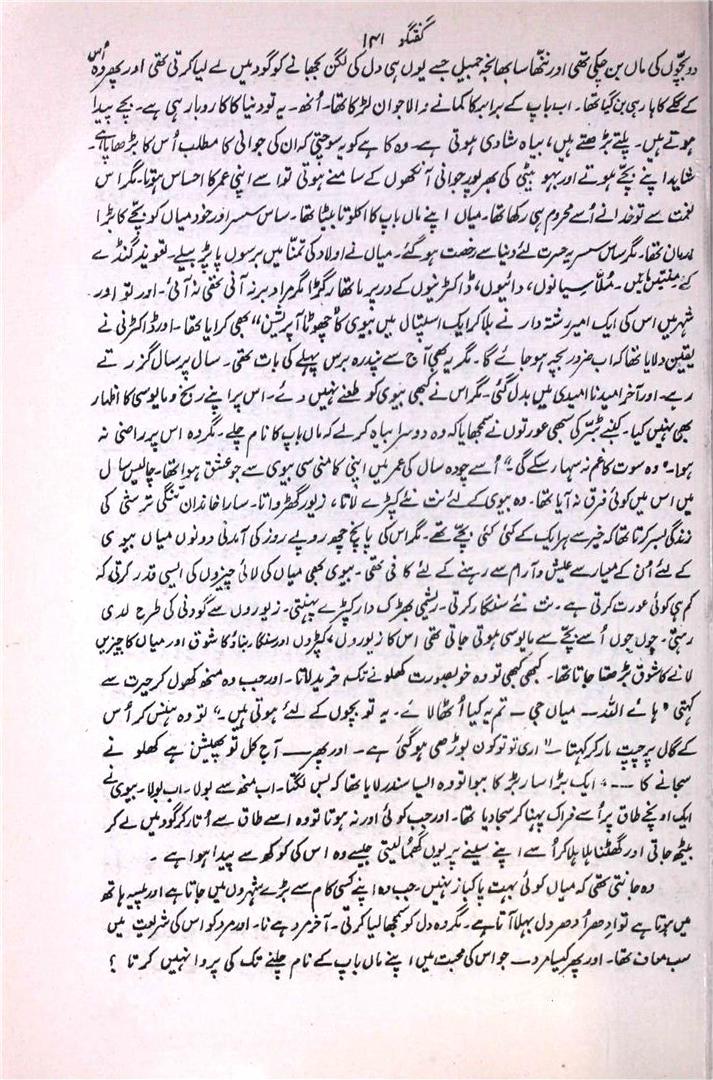 گفتگو ۱۴۱
دو بچّوں کی ماں بن چکی تھی اور ننّھا سا بھانجہ جمیل جسے یوں ہی دل کی لگن بجھانے کو گود میں لے لیا کرتی تھی اور پھر وہ اُس
کے گلے کا ہار ہی بن گیا تھا۔ اب باپ کے برابر کا کمانے والا جوان لڑکا تھا۔ اُنھ۔ یہ تو دنیا کا کاروبار ہی ہے۔ بچے پیدا
ہوتے ہیں۔ پلتے بڑھتے ہیں، بیاہ شادی ہوتی ہے۔ وہ کاہے کو یہ سوچتی کہ ان کی جوانی کا مطلب اُس کا بڑھاپا ہے۔
شاید اپنے بچّے ہوتے اور بہو بیٹی کی بھرپور جوانی آنکھوں کے سامنے ہوتی تو اسے اپنی عمر کا احساس ہوتا۔ مگر اس
نعمت سے تو خدا نے اُسے محروم ہی رکھا تھا۔ میاں اپنے ماں باپ کا اکلوتا بیٹا تھا۔ ساس سسر اور خود میاں کو بچّے کا بڑا
ارمان تھا۔ مگر ساس سسر یہ حسرت لئے دنیا سے رخصت ہو گئے۔ میاں نے اولاد کی تمنّا میں برسوں پاپڑ بیلے۔ تعویذ گنڈے
کئے منتیں مانیں۔ مُلّا سیانوں، دائیوں، ڈاکٹرنیوں کے در پر ماتھا رگڑا مگر مراد بر نہ آنی تھی نہ آئی۔ اور تو اور
شہر میں اس کی ایک امیر رشتہ دار نے بلا کر ایک اسپتال میں بیوی کا "چھوٹا آپریشن" بھی کرایا تھا۔ اور ڈاکٹرنی نے
یقین دلایا تھا کہ اب ضرور بچہ ہو جائے گا۔ مگر یہ بھی آج سے پندرہ برس پہلے کی بات تھی۔ سال پر سال گزرتے
رہے۔ اور آخر امید نا امیدی میں بدل گئی۔ مگر اس نے کبھی بیوی کو طعنے نہیں دئے۔ اس پر اپنے رنج و مایوسی کا اظہار
بھی نہیں کیا۔ کنبے ٹبّر کی سبھی عورتوں نے سمجھایا کہ وہ دوسرا بیاہ کر لے کہ ماں باپ کا نام چلے۔ مگر وہ اس پر راضی نہ
ہوا۔ "وہ سوت کا غم نہ سہار سکے گی۔" اُسے چودہ سال کی عمر میں اپنی کامنی سی بیوی سے جو عشق ہوا تھا۔ چالیس سال
میں اس میں کوئی فرق نہ آیا تھا۔ وہ بیوی کے لئے نت نئے کپڑے لاتا، زیور گھڑواتا۔ سارا خاندان تنگی ترسی کی
زندگی بسر کرتا تھا کہ خیر سے ہر ایک کے کئی کئی بچّے تھے۔ مگر اس کی پانچ چھ روپے روز کی آمدنی دونوں میاں بیوی
کے لئے اُن کے معیار سے عیش و آرام سے رہنے کے لئے کافی تھی۔ بیوی بھی میاں کی لائی چیزوں کی ایسی قدر کرتی کہ
کم ہی کوئی عورت کرتی ہے۔ نت نئے سنگار کرتی۔ ریشمی بھڑک دار کپڑے پہنتی۔ زیوروں سے گودنی کی طرح لدی
رہتی۔ جوں جوں اُسے بچّے سے مایوسی ہوتی جاتی تھی اس کا زیوروں، کپڑوں اور سنگار بناؤ کا شوق اور میاں کا چیزیں
لانے کا شوق بڑھتا جاتا تھا۔ کبھی کبھی تو وہ خوبصورت کھلونے تک خرید لاتا۔ اور جب وہ منھ کھول کر حیرت سے
کہتی "ہائے اللہ۔۔ میاں جی۔ تم یہ کیا اُٹھا لائے۔ یہ تو بچوں کے لئے ہوتی ہیں۔" تو وہ ہنس کر اُس
کے گال پر چپت مار کر کہتا۔ "اری تو تو کون بوڑھی ہو گئی ہے۔ اور پھر۔۔ آج کل تو پھیشن ہے کھلونے
سجانے کا ۔۔۔" ایک بڑا سا ربڑ کا ببوا تو وہ ایسا سندر لایا تھا کہ بس لگتا۔ اب منھ سے بولا۔ اب بولا۔ بیوی نے
ایک اونچے طاق پر اُسے فراک پہنا کر سجا دیا تھا۔ اور جب کوئی اور نہ ہوتا تو وہ اسے طاق سے اُتار کر گود میں لے کر
بیٹھ جاتی اور گھٹنا ہلا ہلا کر اُسے اپنے سینے پر یوں گھما لیتی جیسے وہ اس کی کوکھ سے پیدا ہوا ہے۔
وہ جانتی تھی کہ میاں کوئی بہت پاکباز نہیں۔ جب وہ اپنے کسی کام سے بڑے شہروں میں جاتا ہے اور پیسہ ہاتھ
میں ہوتا ہے تو ادھر اُدھر دل بہلا آتا ہے۔ مگر وہ دل کو سمجھا لیا کرتی۔ آخر مرد ہے نا۔ اور مرد کو اس کی شریعت میں
سب معاف تھا۔ اور پھر کیسا مرد۔ جو اس کی محبت میں اپنے ماں باپ کے نام چلنے تک کی پروا نہیں کرتا ؟